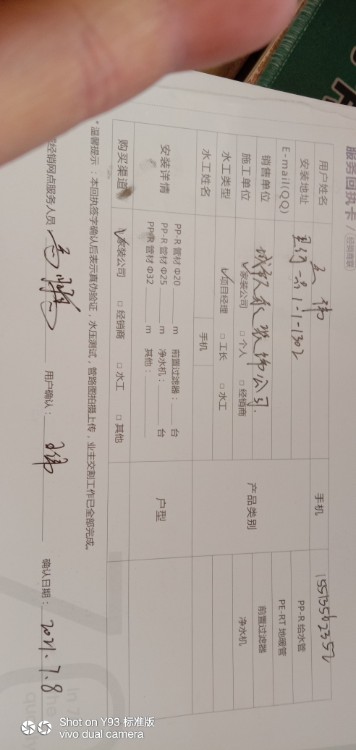 服务回执卡
用户姓名 手机 15513562352
安装地址 1-1302 PP-R 给水管
E-mail(QQ) PE-RT 地暖管
销售单位 装饰公司 产品类别 前置过滤器
施工单位 ☑家装公司 □个人 □经销商 净水机
水工类型 ☑项目经理 □工长 □水工
水工姓名 手机
安装详情 PP-R 管材 Φ20 m 前置过滤器: 台 户型
PP-R 管材 Φ25 m 净水机: 台
PP-R 管材 Φ32 m 其他:
购买渠道 ☑家装公司 □经销商 □水工 □其他
*温馨提示:本回执签字确认后表示真伪验证,水压测试,管路图拍摄上传,业主交割工作已全部完成。
经销网点服务人员 用户确认: 确认日期: 2021.7.8
Shot on Y93 标准版
vivo dual camera